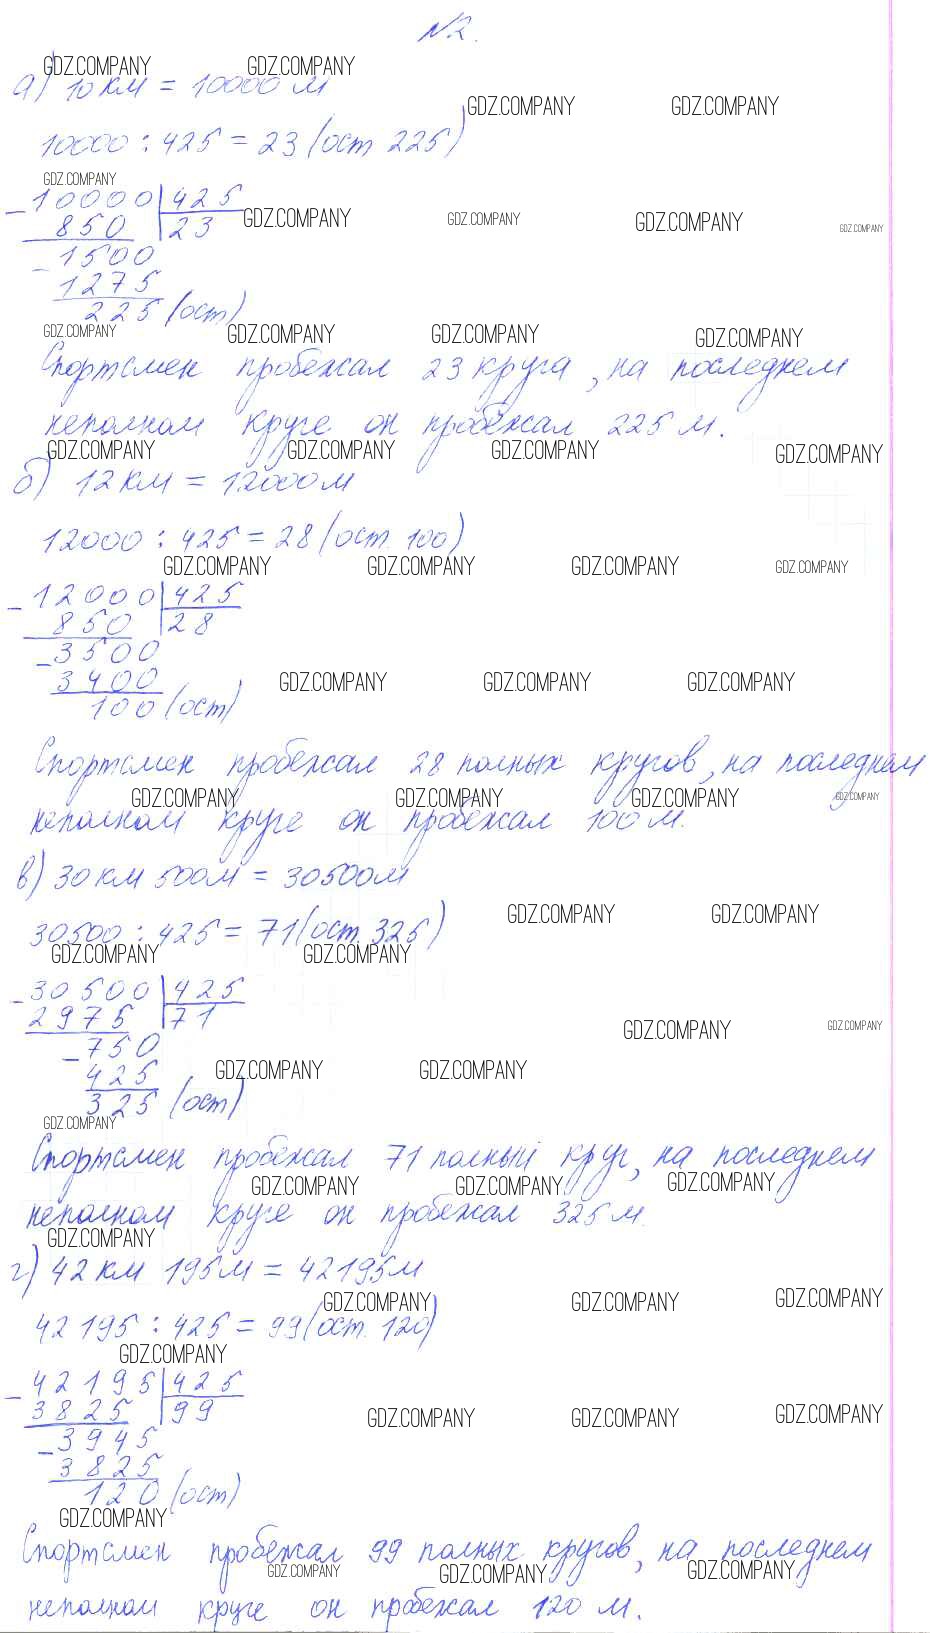 №2.
GDZ.COMPANY GDZ.COMPANY
а) 10 км = 10000 м
GDZ.COMPANY GDZ.COMPANY
10000 : 425 = 23 (ост 225)
GDZ.COMPANY
- 10000 | 425
850 | 23 GDZ.COMPANY GDZ.COMPANY GDZ.COMPANY GDZ.COMPANY
- 1500
1275
225 (ост)
GDZ.COMPANY GDZ.COMPANY GDZ.COMPANY GDZ.COMPANY
Спортсмен пробежал 23 круга, на последнем
неполном круге он пробежал 225 м.
GDZ.COMPANY GDZ.COMPANY GDZ.COMPANY GDZ.COMPANY
б) 12 км = 12000 м
12000 : 425 = 28 (ост. 100)
GDZ.COMPANY GDZ.COMPANY GDZ.COMPANY GDZ.COMPANY
- 12000 | 425
850 | 28
- 3500
3400 GDZ.COMPANY GDZ.COMPANY GDZ.COMPANY
100 (ост)
Спортсмен пробежал 28 полных кругов, на последнем
GDZ.COMPANY GDZ.COMPANY GDZ.COMPANY GDZ.COMPANY
неполном круге он пробежал 100 м.
в) 30 км 500 м = 30500 м
GDZ.COMPANY GDZ.COMPANY
30500 : 425 = 71 (ост. 325)
GDZ.COMPANY GDZ.COMPANY
- 30500 | 425
2975 | 71
GDZ.COMPANY GDZ.COMPANY
- 750
425 GDZ.COMPANY GDZ.COMPANY
325 (ост)
GDZ.COMPANY
Спортсмен пробежал 71 полный круг, на последнем
GDZ.COMPANY GDZ.COMPANY GDZ.COMPANY
неполном круге он пробежал 325 м.
GDZ.COMPANY
г) 42 км 195 м = 42195 м
GDZ.COMPANY GDZ.COMPANY GDZ.COMPANY
42195 : 425 = 99 (ост. 120)
GDZ.COMPANY
- 42195 | 425
3825 | 99
GDZ.COMPANY GDZ.COMPANY GDZ.COMPANY
- 3945
3825
120 (ост)
GDZ.COMPANY
Спортсмен пробежал 99 полных кругов, на последнем
GDZ.COMPANY GDZ.COMPANY GDZ.COMPANY
неполном круге он пробежал 120 м.